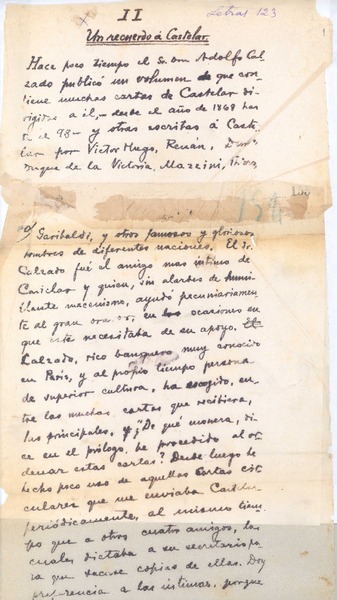 II
Letras 123
Un recuerdo á Castelar.
1
Hace poco tiempo el Sr. Don Adolfo Cal-
zado publicó un volumen de que con-
tiene muchas cartas de Castelar di-
rigidas a él, – desde el año de 1868 has
ta el 98 – y otras escritas á Caste-
lar por Victor Hugo, Renán,
Duque de la Victoria, Mazzini,
Garibaldi, y otros famosos y gloriosos
hombres de diferentes naciones. El Sr.
Calzado fué el amigo mas intimo de
Castelar y quien, sin alardes de humi
llante mecenismo, ayudó pecuniariamen-
te al gran orador, en las ocasiones en
que este necesitaba de su apoyo. El
Calzado, rico banquero muy conocido
en París, y al propio tiempo persona
de superior cultura, ha escogido, en-
tre las muchas cartas que recibiera,
las principales. ¿De qué manera, di-
ce en el prólogo, he procedido al or-
denar estas cartas? Desde luego he
hecho poco uso de aquellas cartas cir
culares que me enviaba Castelar
periódicamente, al mismo tiem
po que a otros cuatro amigos, las
cuales dictaba a su secretario pa
ra que sacase copias de ellas. Doy
preferencia a las íntimas, porque